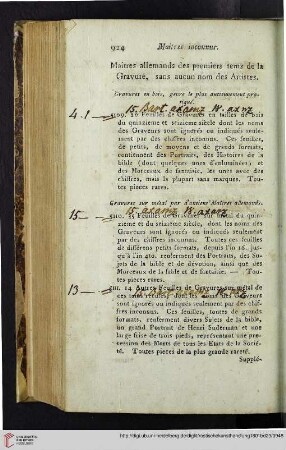 924 Maitres inconnus.
Maitres allemands des premiers tems de la
Gravure, sans aucun nom des Artistes.
Gravures en bois, genre le plus anciennement pra-
tiqué.
4.1
26 Feuilles de Gravures en tailles de bois
du quinzieme et seizieme siècle dont les noms
des Graveurs sont ignorés ou indiqués seule-
ment par des chiffres inconnus. Ces feuilles,
de petits, de moyens et de grands formats,
contiennent des Portraits, des Histoires de la
bible (dont quelques unes d'enluminées) et
des Morceaux de fantaisie, les unes avec des
chiffres, mais la plupart sans marques. Tou-
tes pieces rares.
Gravures sur métal par d'anciens Maitres allemands.
15
3110. 35 Feuilles de Gravures sur métal du quin-
zieme et du seizieme siècle, dont les noms des
Graveurs sont ignorés ou indiqués seulement
par des chiffres inconnus. Toutes ces feuilles
de différens petits formats, depuis l'in 16. jus-
qu'à l'in 4to. renferment des Portraits, des Su-
jets de la bible et de dévotion, ainsi que des
Morceaux de la fable et de fantaisie. — Tou-
tes pieces rares.
13
14 Autres Feuilles de Gravures sur métal de
ces dont les noms des Graveurs
sont ignorés ou indiqués seulement par des chif-
fres inconnus. Ces feuilles, toutes de grands
formats, renferment divers Sujets de la bible,
un grand Portrait de Henri Suderman et une
large frise de trois pieds, représentant une pro-
cession des Morts de tous les Etats de la Socié-
té. Toutes pieces de la plus grande rareté.
Supplé-